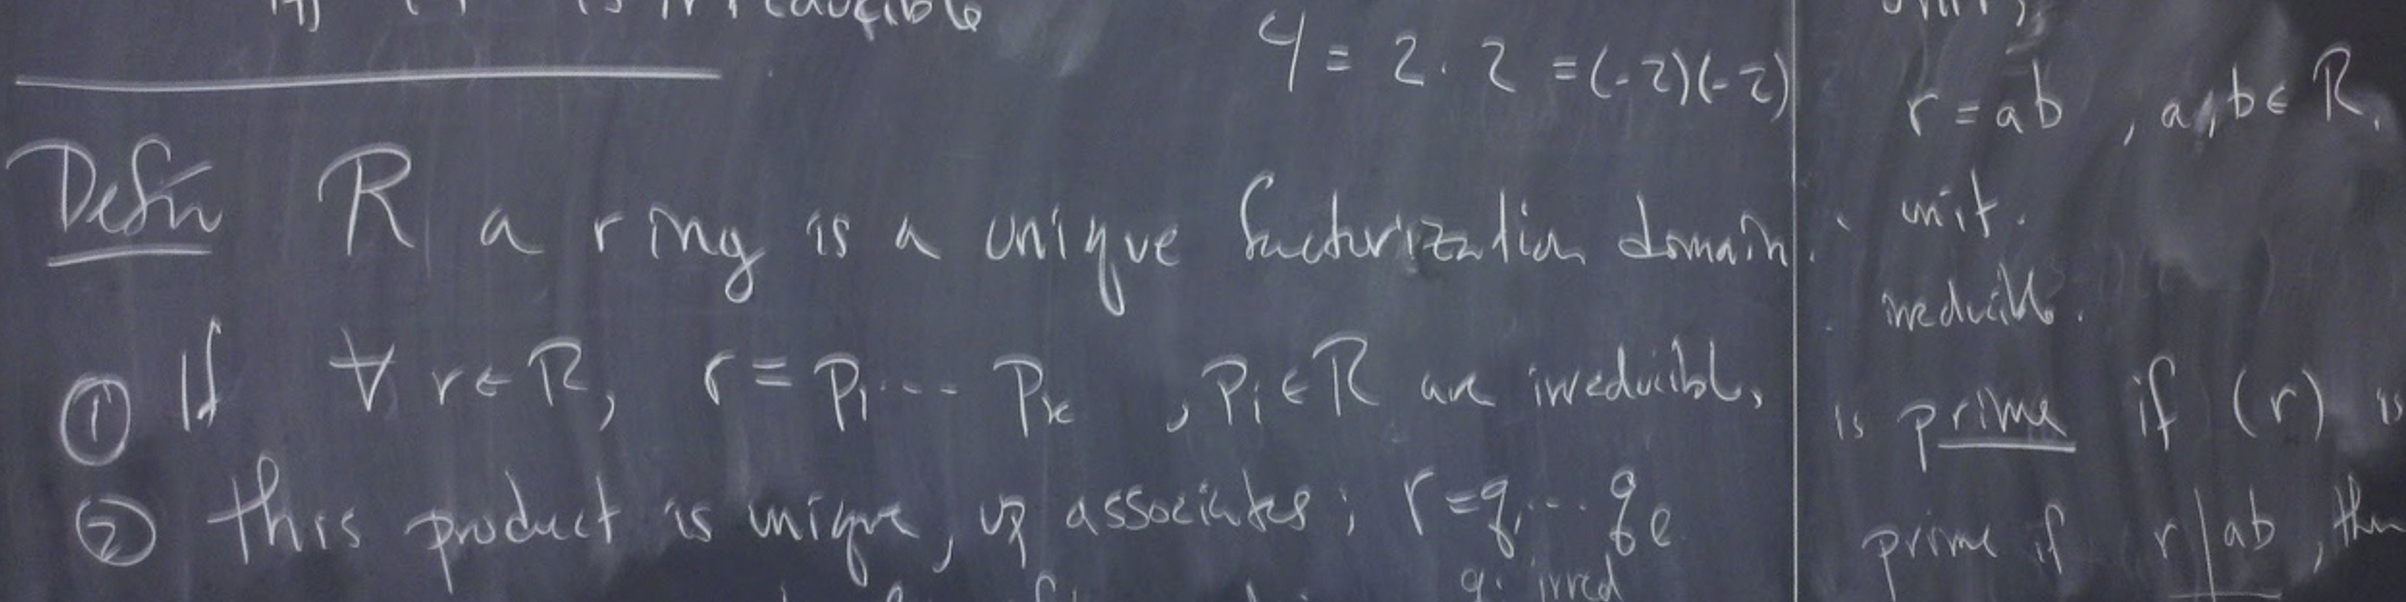 is irreducible
4 = 2 · 2 = (-2)(-2)
Defn R a ring is a unique factorization domain.
① If ∀ r ∈ R, r = p₁ ... pₖ , pᵢ ∈ R are irreducible,
② this product is unique, up associates; r = q₁ ... qₗ
qᵢ irred
r = ab , a, b ∈ R.
unit.
irreducible.
is prime if (r) is
prime if r | ab , then